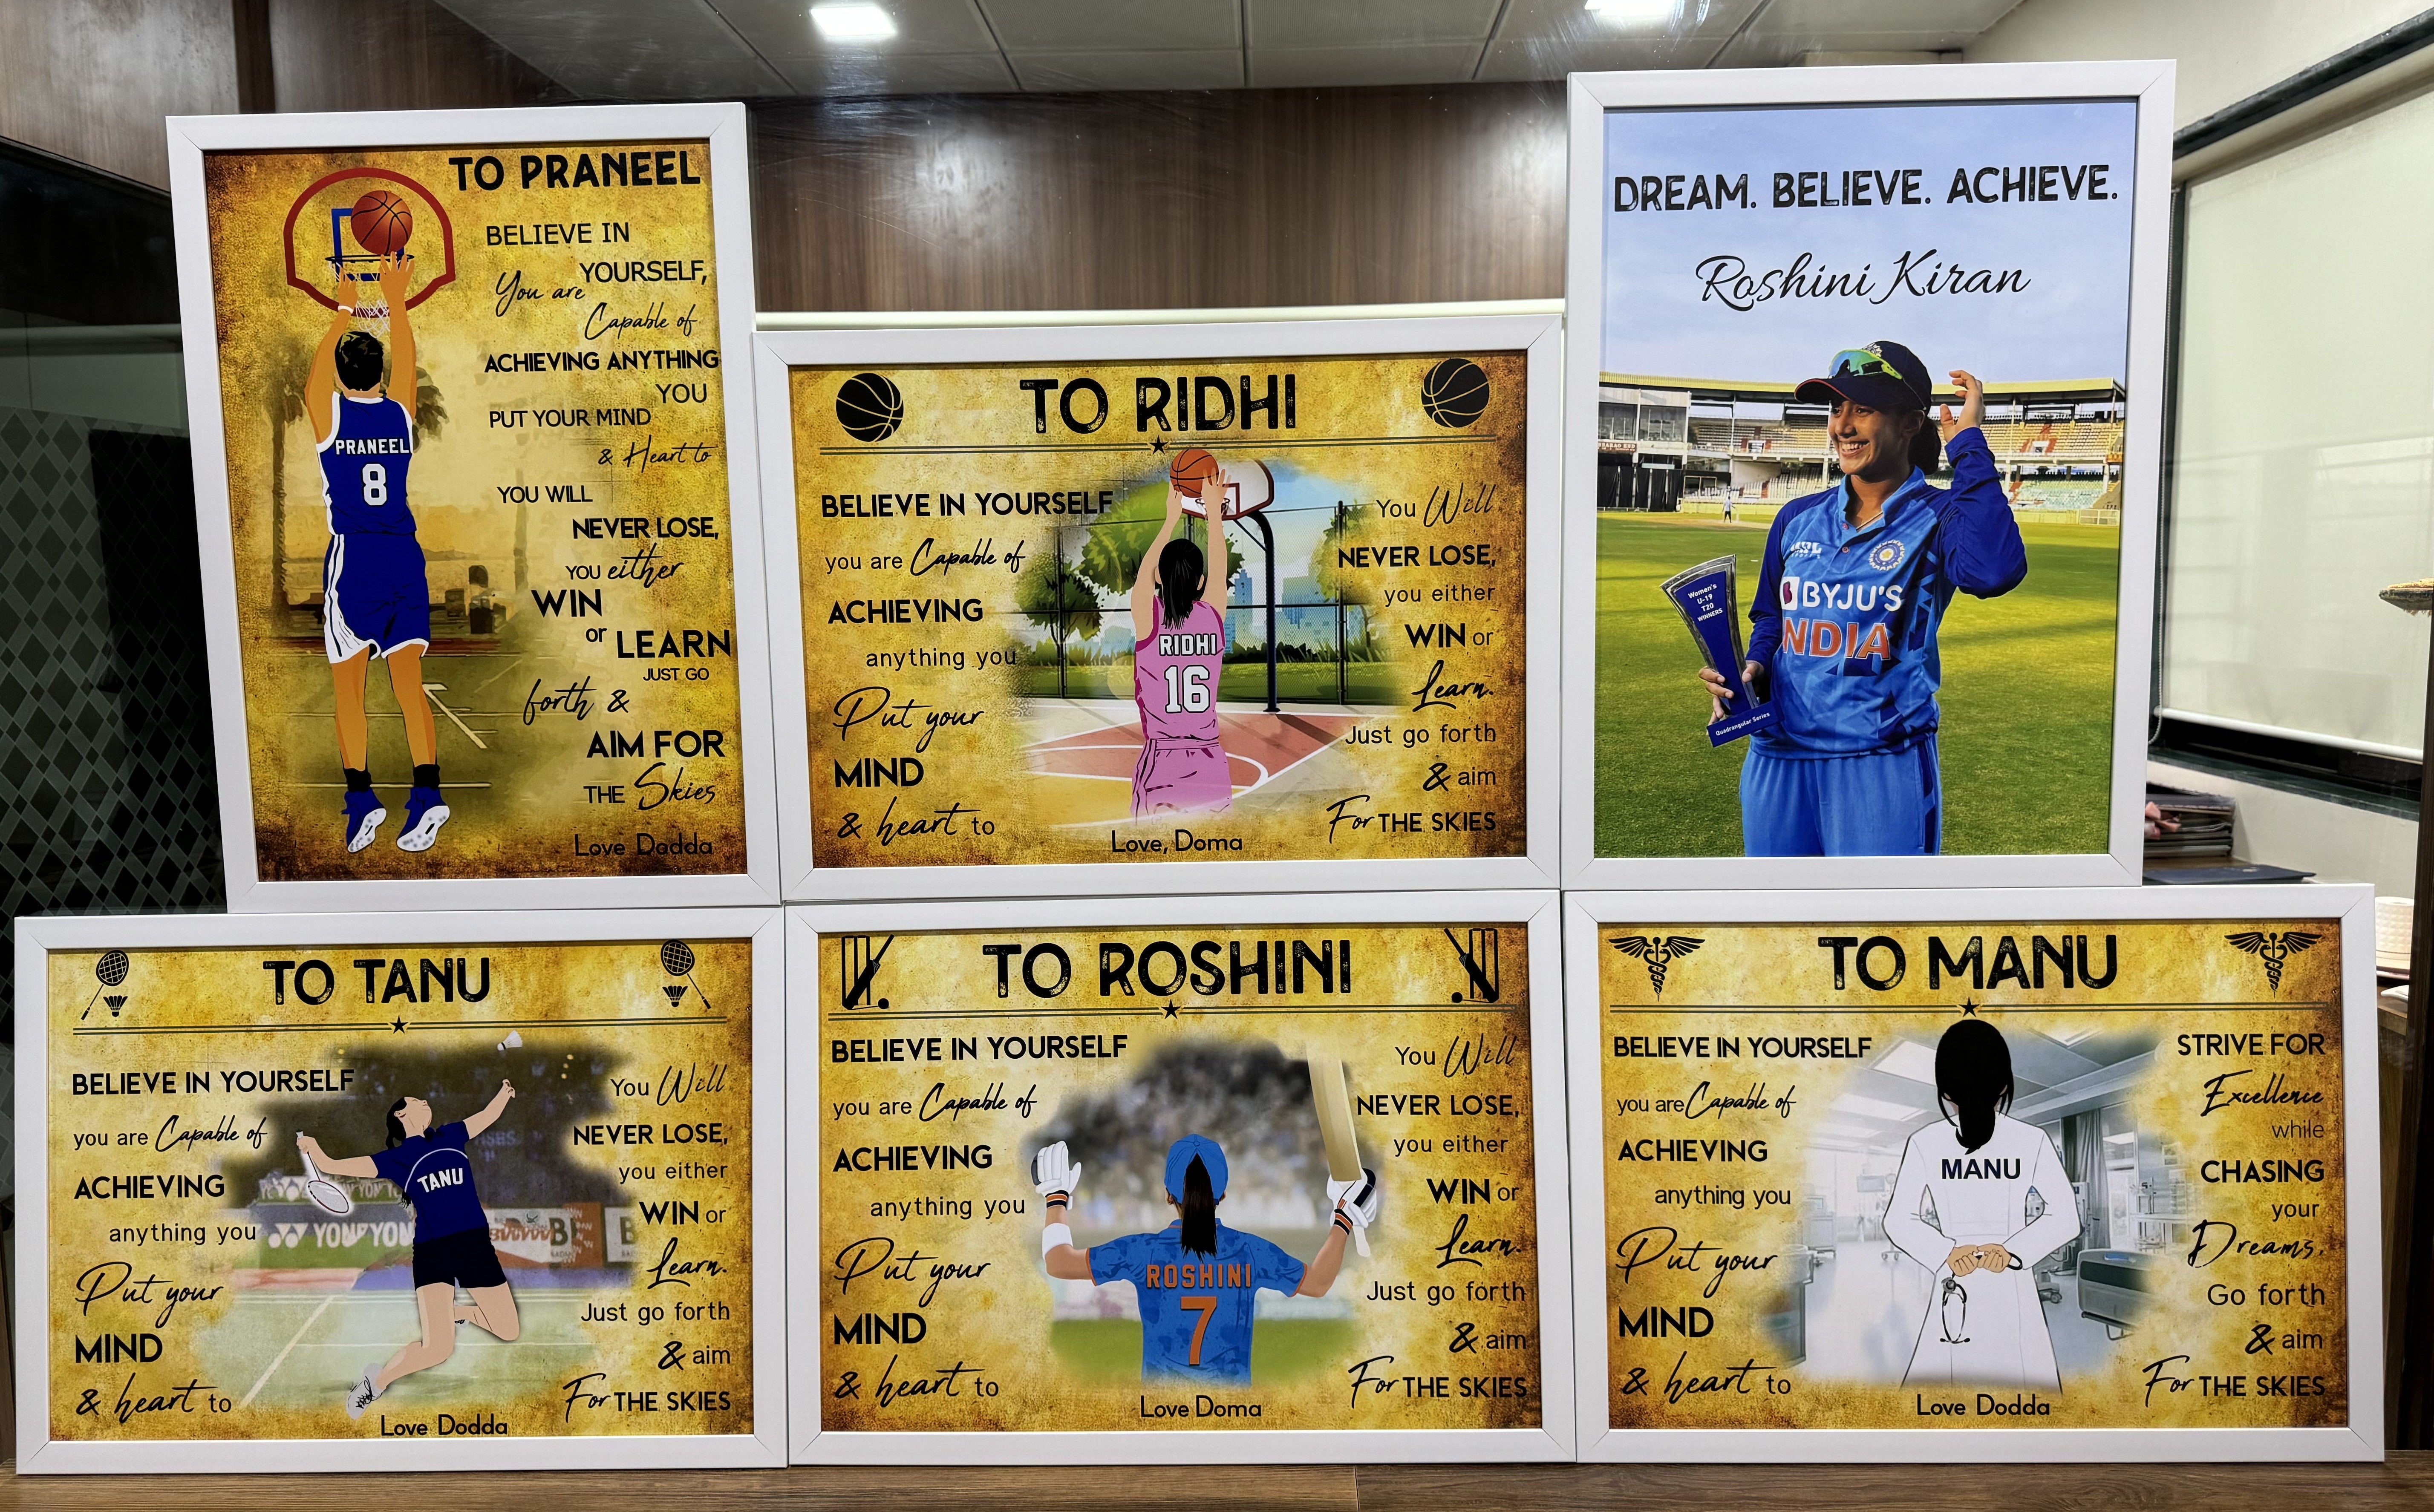 TO PRANEEL
BELIEVE IN
YOURSELF,
You are
Capable of
ACHIEVING ANYTHING
YOU
PUT YOUR MIND
& Heart to
YOU WILL
NEVER LOSE,
YOU either
WIN
or LEARN
JUST GO
forth &
AIM FOR
THE Skies
Love Dadda
PRANEEL
8
TO RIDHI
BELIEVE IN YOURSELF
you are Capable of
ACHIEVING
anything you
Put your
MIND
& heart to
RIDHI
16
You Will
NEVER LOSE,
you either
WIN or
Learn.
Just go forth
& aim
For THE SKIES
Love, Doma
DREAM. BELIEVE. ACHIEVE.
Roshini Kiran
BYJU'S
INDIA
Women's
U-19
T20
WINNERS
Quadrangular Series
TO TANU
BELIEVE IN YOURSELF
you are Capable of
ACHIEVING
anything you
Put your
MIND
& heart to
TANU
YONEX
You Will
NEVER LOSE,
you either
WIN or
Learn.
Just go forth
& aim
For THE SKIES
Love Dodda
TO ROSHINI
BELIEVE IN YOURSELF
you are Capable of
ACHIEVING
anything you
Put your
MIND
& heart to
ROSHINI
7
You Will
NEVER LOSE,
you either
WIN or
Learn.
Just go forth
& aim
For THE SKIES
Love Doma
TO MANU
BELIEVE IN YOURSELF
you are Capable of
ACHIEVING
anything you
Put your
MIND
& heart to
MANU
STRIVE FOR
Excellence
while
CHASING
your
Dreams,
Go forth
& aim
For THE SKIES
Love Dodda